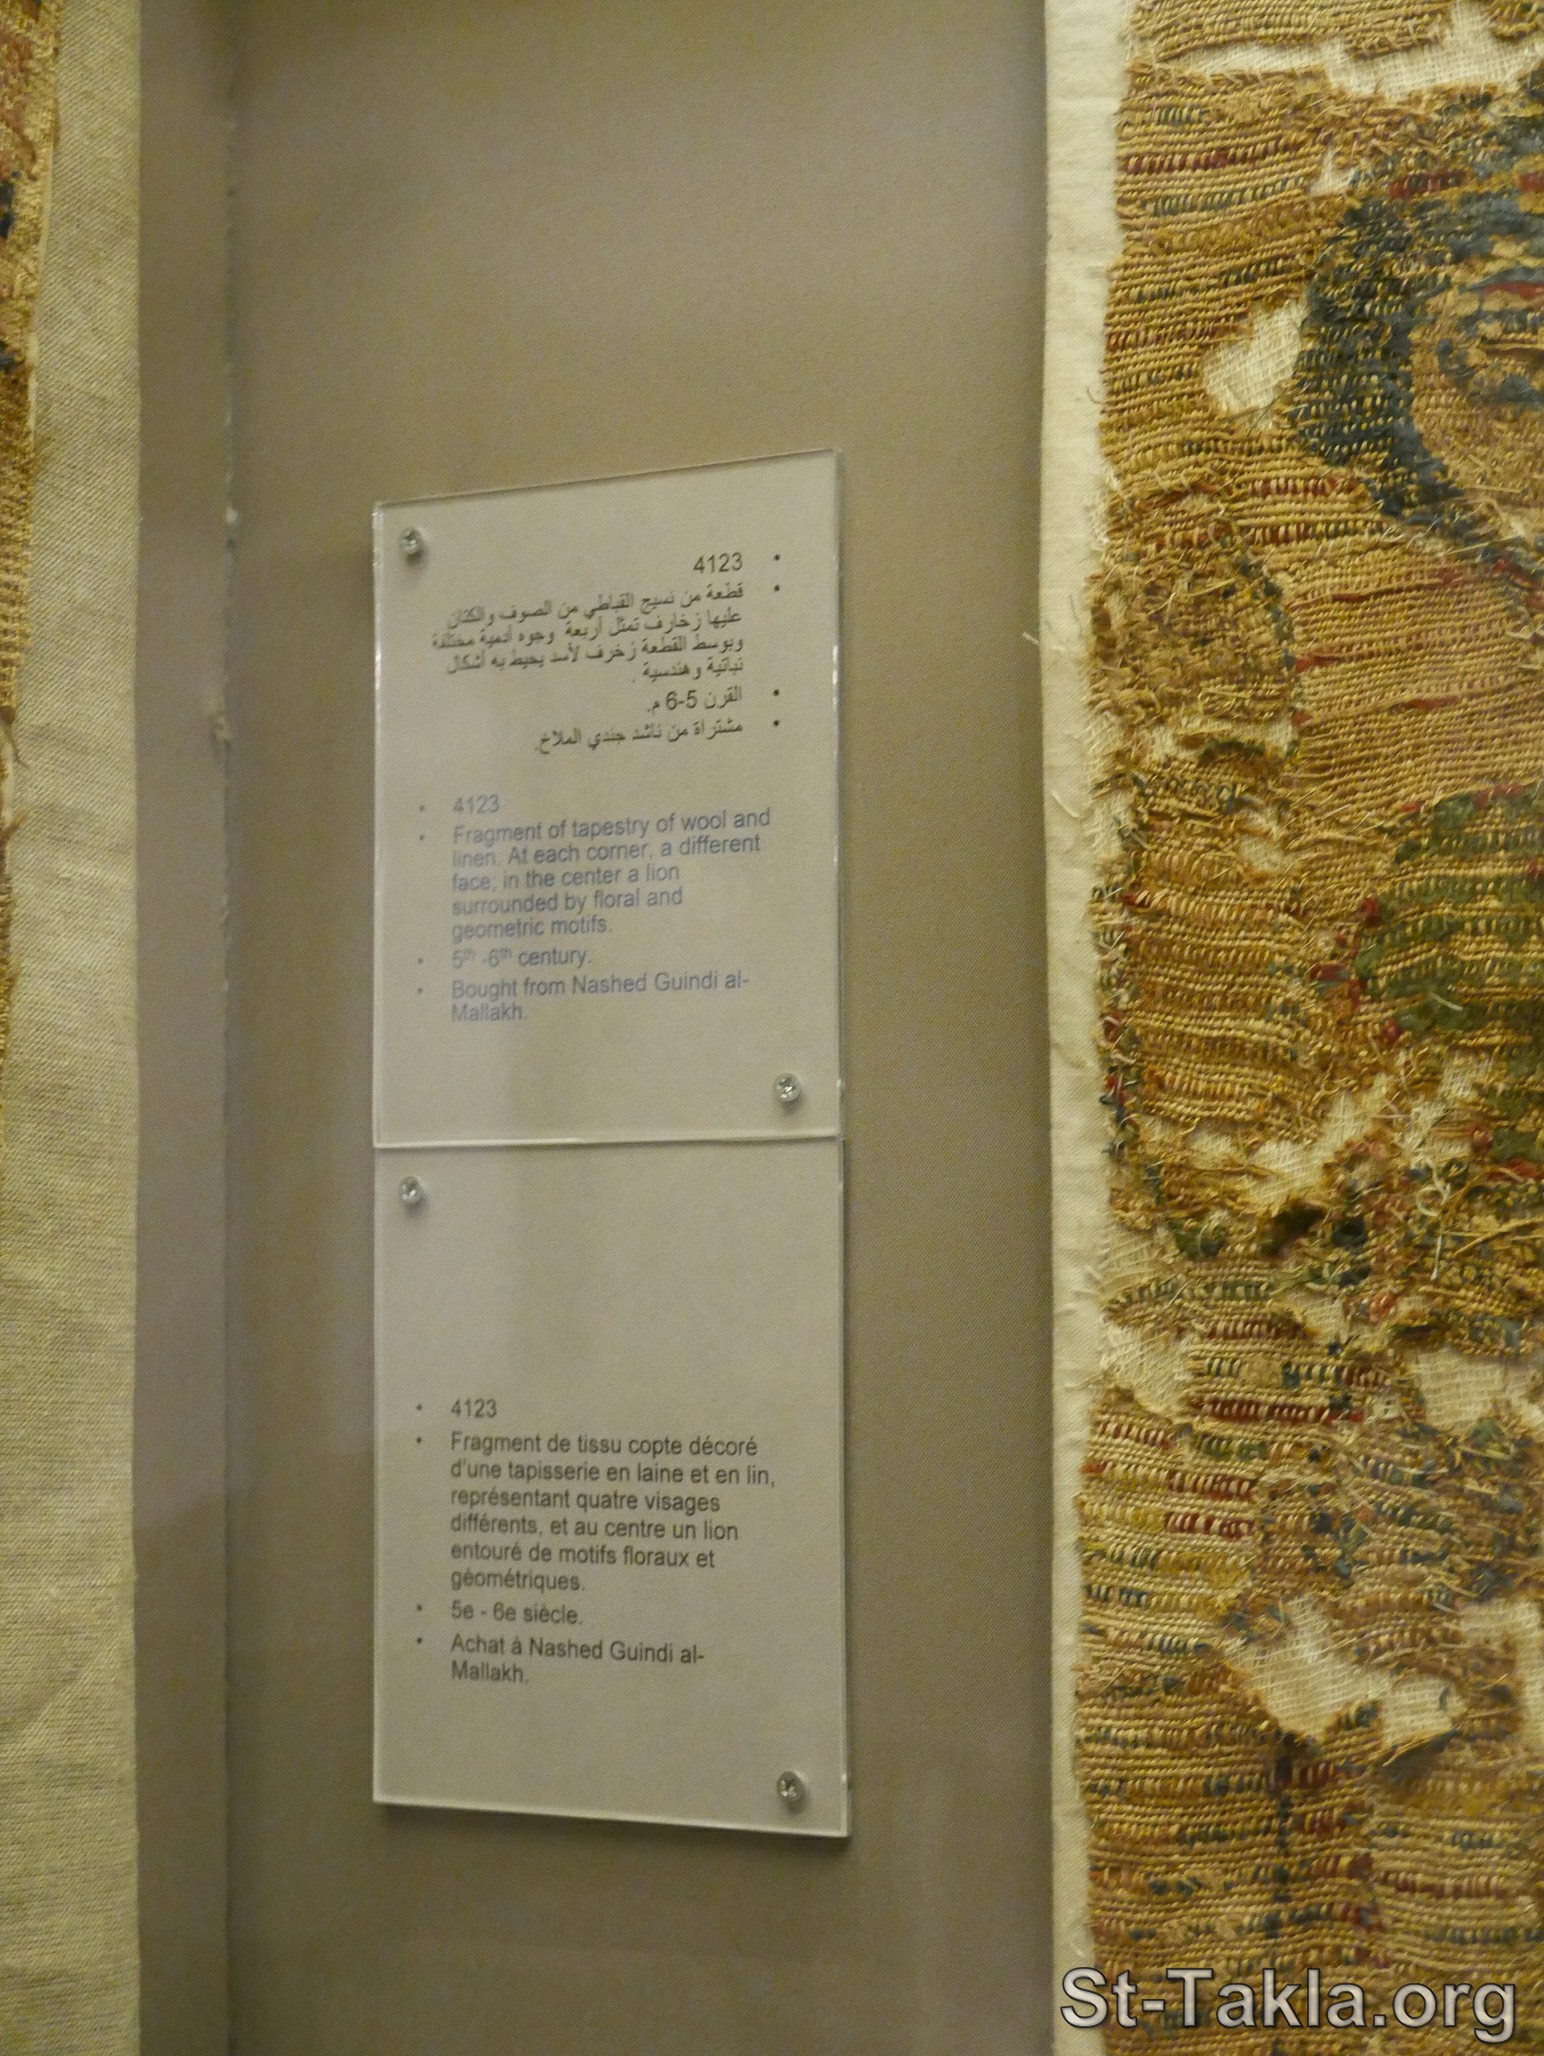 • 4123
• قطعة من نسيج القباطي من الصوف والكتان
عليها زخارف تمثل أربعة وجوه أدمية مختلفة
وبوسط القطعة زخرف لأسد يحيط به أشكال
نباتية وهندسية .
• القرن 5-6 م.
• مشتراة من ناشد جندي الملاخ.
• 4123
• Fragment of tapestry of wool and
linen. At each corner, a different
face; in the center a lion
surrounded by floral and
geometric motifs.
• 5th -6th century.
• Bought from Nashed Guindi al-
Mallakh.
• 4123
• Fragment de tissu copte décoré
d'une tapisserie en laine et en lin,
représentant quatre visages
différents, et au centre un lion
entouré de motifs floraux et
géométriques.
• 5e - 6e siècle.
• Achat à Nashed Guindi al-
Mallakh.
St-Takla.org